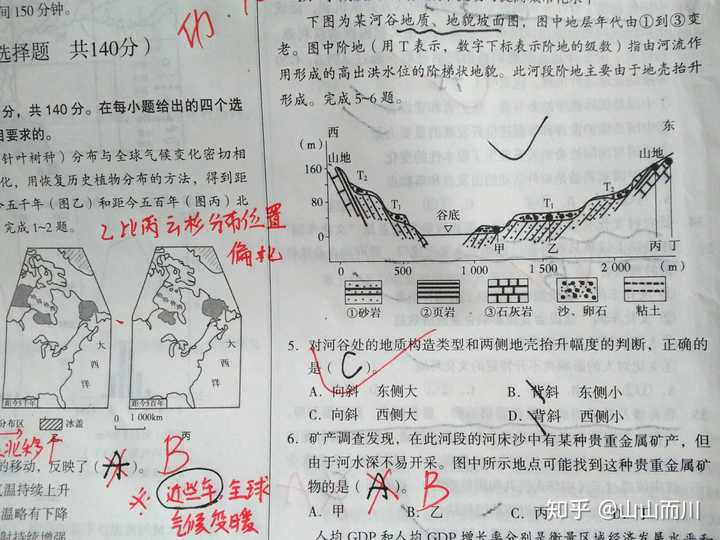 间 150 分钟。
选择题 共140分）
分，共 140 分。在每小题给出的四个选
目要求的。
针叶树种）分布与全球气候变化密切相
化，用恢复历史植物分布的方法，得到距
今五千年（图乙）和距今五百年（图丙）北
完成 1~2 题。
乙比丙云杉分布位置
偏北
大
西
洋
距今5千年
大
西
洋
距今5百年
分布区
冰盖
0 1 000km
丙
的移动，反映了（ A ）。 B
气温持续上升
温略有下降
时持续增强
※ 近些年，全球
气候变暖
下图为某河谷地质、地貌坡面图，图中地层年代由①到③变
老。图中阶地（用 T 表示，数字下标表示阶地的级数）指由河流作
用形成的高出洪水位的阶梯状地貌。此河段阶地主要由于地壳抬升
形成。完成 5~6 题。
西 东
(m)
山地 山地
160
120
80
0
T₂ T₁ 谷底 T₁ T₂
甲 乙 丙 丁
0 500 1 000 1 500 2 000 (m)
①砂岩 ②页岩 ③石灰岩 沙、卵石 粘土
5. 对河谷处的地质构造类型和两侧地壳抬升幅度的判断，正确的
是（ C ）。
A. 向斜 东侧大 B. 背斜 东侧小
C. 向斜 西侧大 D. 背斜 西侧小
6. 矿产调查发现，在此河段的河床沙中有某种贵重金属矿产，但
由于河水深不易开采。图中所示地点可能找到这种贵重金属矿
物的是（ A ）。 B
A. 甲 B. 乙 C. 丙
人均 GDP 和人均 GDP 增长率分别是衡量区域经济发展水平和
知乎 @山山而川